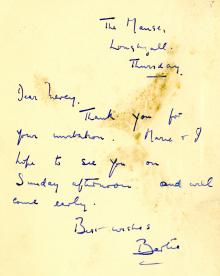 The Manse,
Loughgall.
Thursday.
Dear Mercy,
Thank you for
your invitation. Marie & I
hope to see you on
Sunday afternoon and will
come early.
Best wishes
Bertie